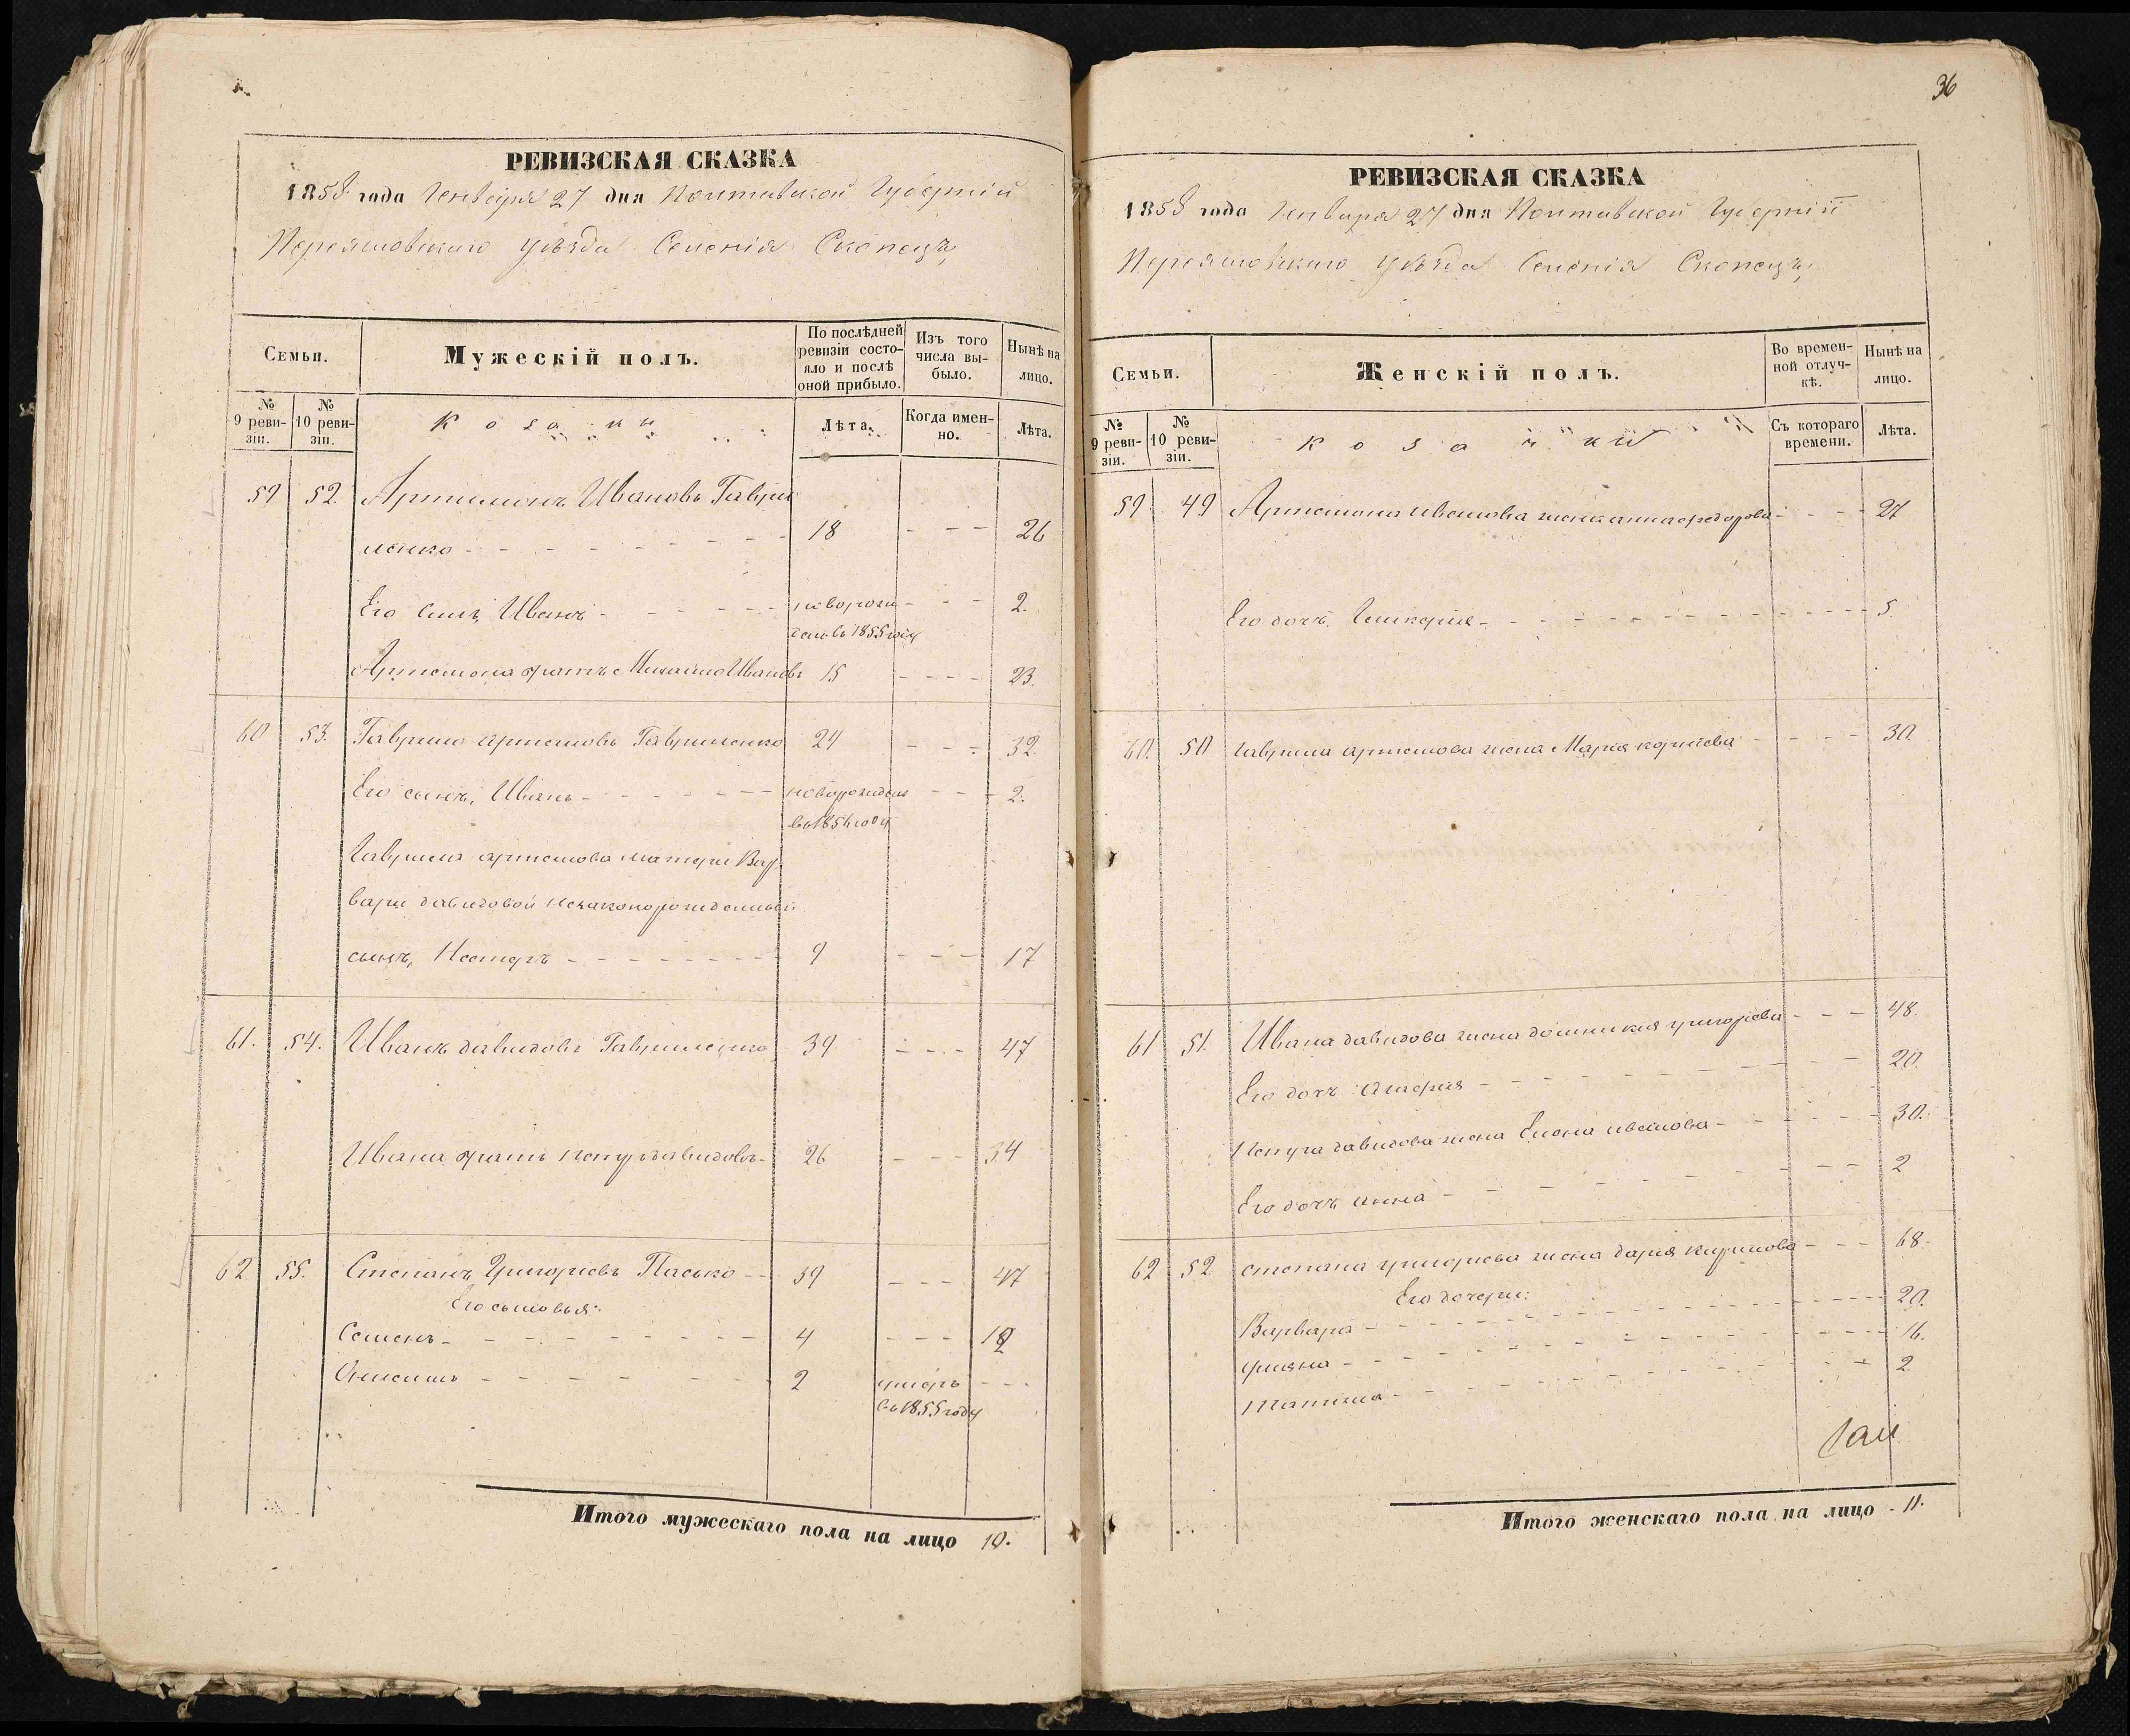 РЕВИЗСКАЯ СКАЗКА
1858 года Генваря 27 дня Полтавской Губерніи
Переяславскаго уѣзда Селенія Скопецъ,
Семьи.
Мужескій полъ.
По послѣдней ревизіи состояло и послѣ оной прибыло.
Изъ того числа выбыло.
Нынѣ на лицо.
№ 9 ревизіи.
№ 10 ревизіи.
Козаки
Лѣта.
Когда именно.
Лѣта.
59 52. Артемонъ Ивановъ Гаври
ленко - - - 18 - - - 26
Его сынъ Иванъ - - - новорож - - - 2.
денъ въ 1855 году
Артемона братъ Михайло Ивановъ 15 - - - - 23.
60 53. Гаврило Артемовъ Гавриленко 24 - - - 32.
Его сынъ, Иванъ - - - новорожденъ - - - 2.
въ 1856 году
Гаврила артемова матери Вар
вары давидовой незаконорожденный
сынъ, Несторъ - - - 9 - - - 17
61. 54. Иванъ давидовъ Гавриленко 39 - - - 47
Ивана братъ петръ давидовъ - 26 - - - 34
62 55. Степанъ Григоріевъ Пасько - - 39 - - - 47
Его сыновья:
Семенъ - - - 4 - - - 12
Онисимъ - - - 2 умеръ - - -
въ 1855 году
Итого мужескаго пола на лицо 10.
36
РЕВИЗСКАЯ СКАЗКА
1858 года Генваря 27 дня Полтавской Губерніи
Переяславскаго уѣзда Селенія Скопецъ,
Семьи.
Женскій полъ.
Во временной отлучкѣ.
Нынѣ на лицо.
№ 9 ревизіи.
№ 10 ревизіи.
козачки
Съ котораго времени.
Лѣта.
59. 49 Артемона иванова жена анна федорова - - - 27
Его дочь, Гликерія - - - 5
60. 50 Гаврила артемова жена Марія корнѣева - - - - 30.
61 51. Ивана давидова жена домникия григоріева - - - 48.
Его дочь - - - 20.
Петра давидова жена Елена иванова - - - 30.
Его дочь анна - - - 2
62 52 степана григориева жена дария кирилова - - - 68.
Его дочери:
Варвара - - - 20.
улияна - - - 16.
- - - 2
Итого женскаго пола на лицо - 11.